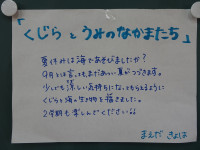 「くじらとうみのなかまたち」
夏休みは海であそびましたか?
9月とは言っても、まだあつい夏がつづきます。
少しでも涼しい気持ちになってもらえるように
くじらと海の生き物を描きました。
2学期も楽しんでくださいね
まえだ